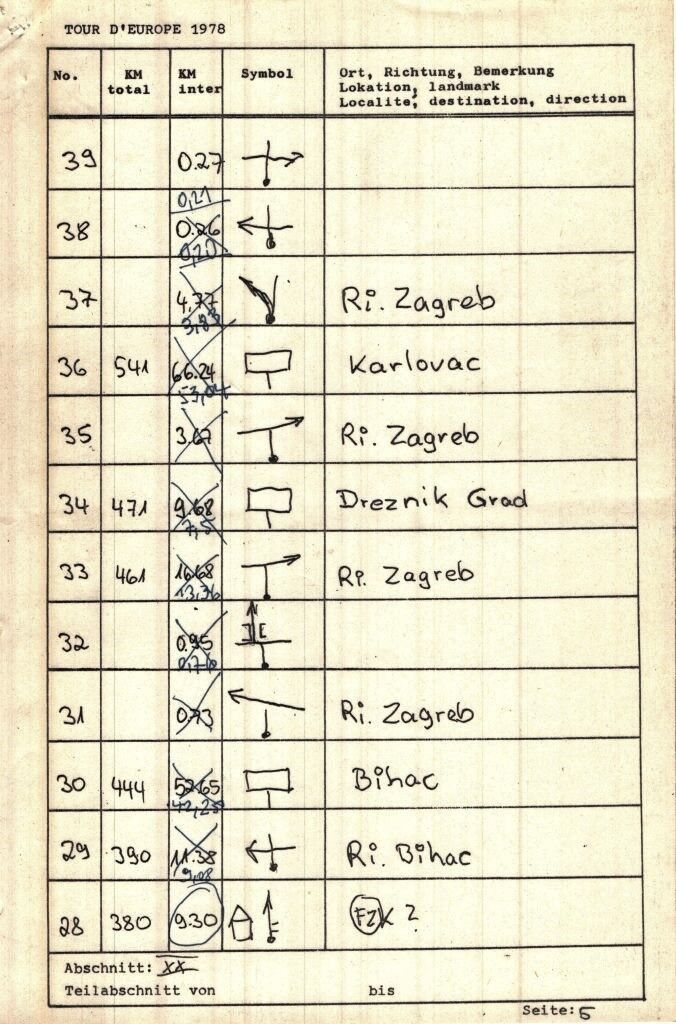 TOUR D'EUROPE 1978
No. KM total KM inter Symbol Ort, Richtung, Bemerkung
Lokation, landmark
Localite, destination, direction
39 0.27
0,21
38 0.26
0,20
37 4,77 Ri. Zagreb
3,83
36 541 66.24 Karlovac
53,04
35 3.67 Ri. Zagreb
34 471 9.68 Dreznik Grad
7,5
33 461 16.68 Ri. Zagreb
13,36
32 0.95
0,76
31 0.73 Ri. Zagreb
30 444 52.65 Bihac
42,25
29 390 11.38 Ri. Bihac
9,08
28 380 9.30 FZK ?
Abschnitt: XX
Teilabschnitt von bis
Seite: 5